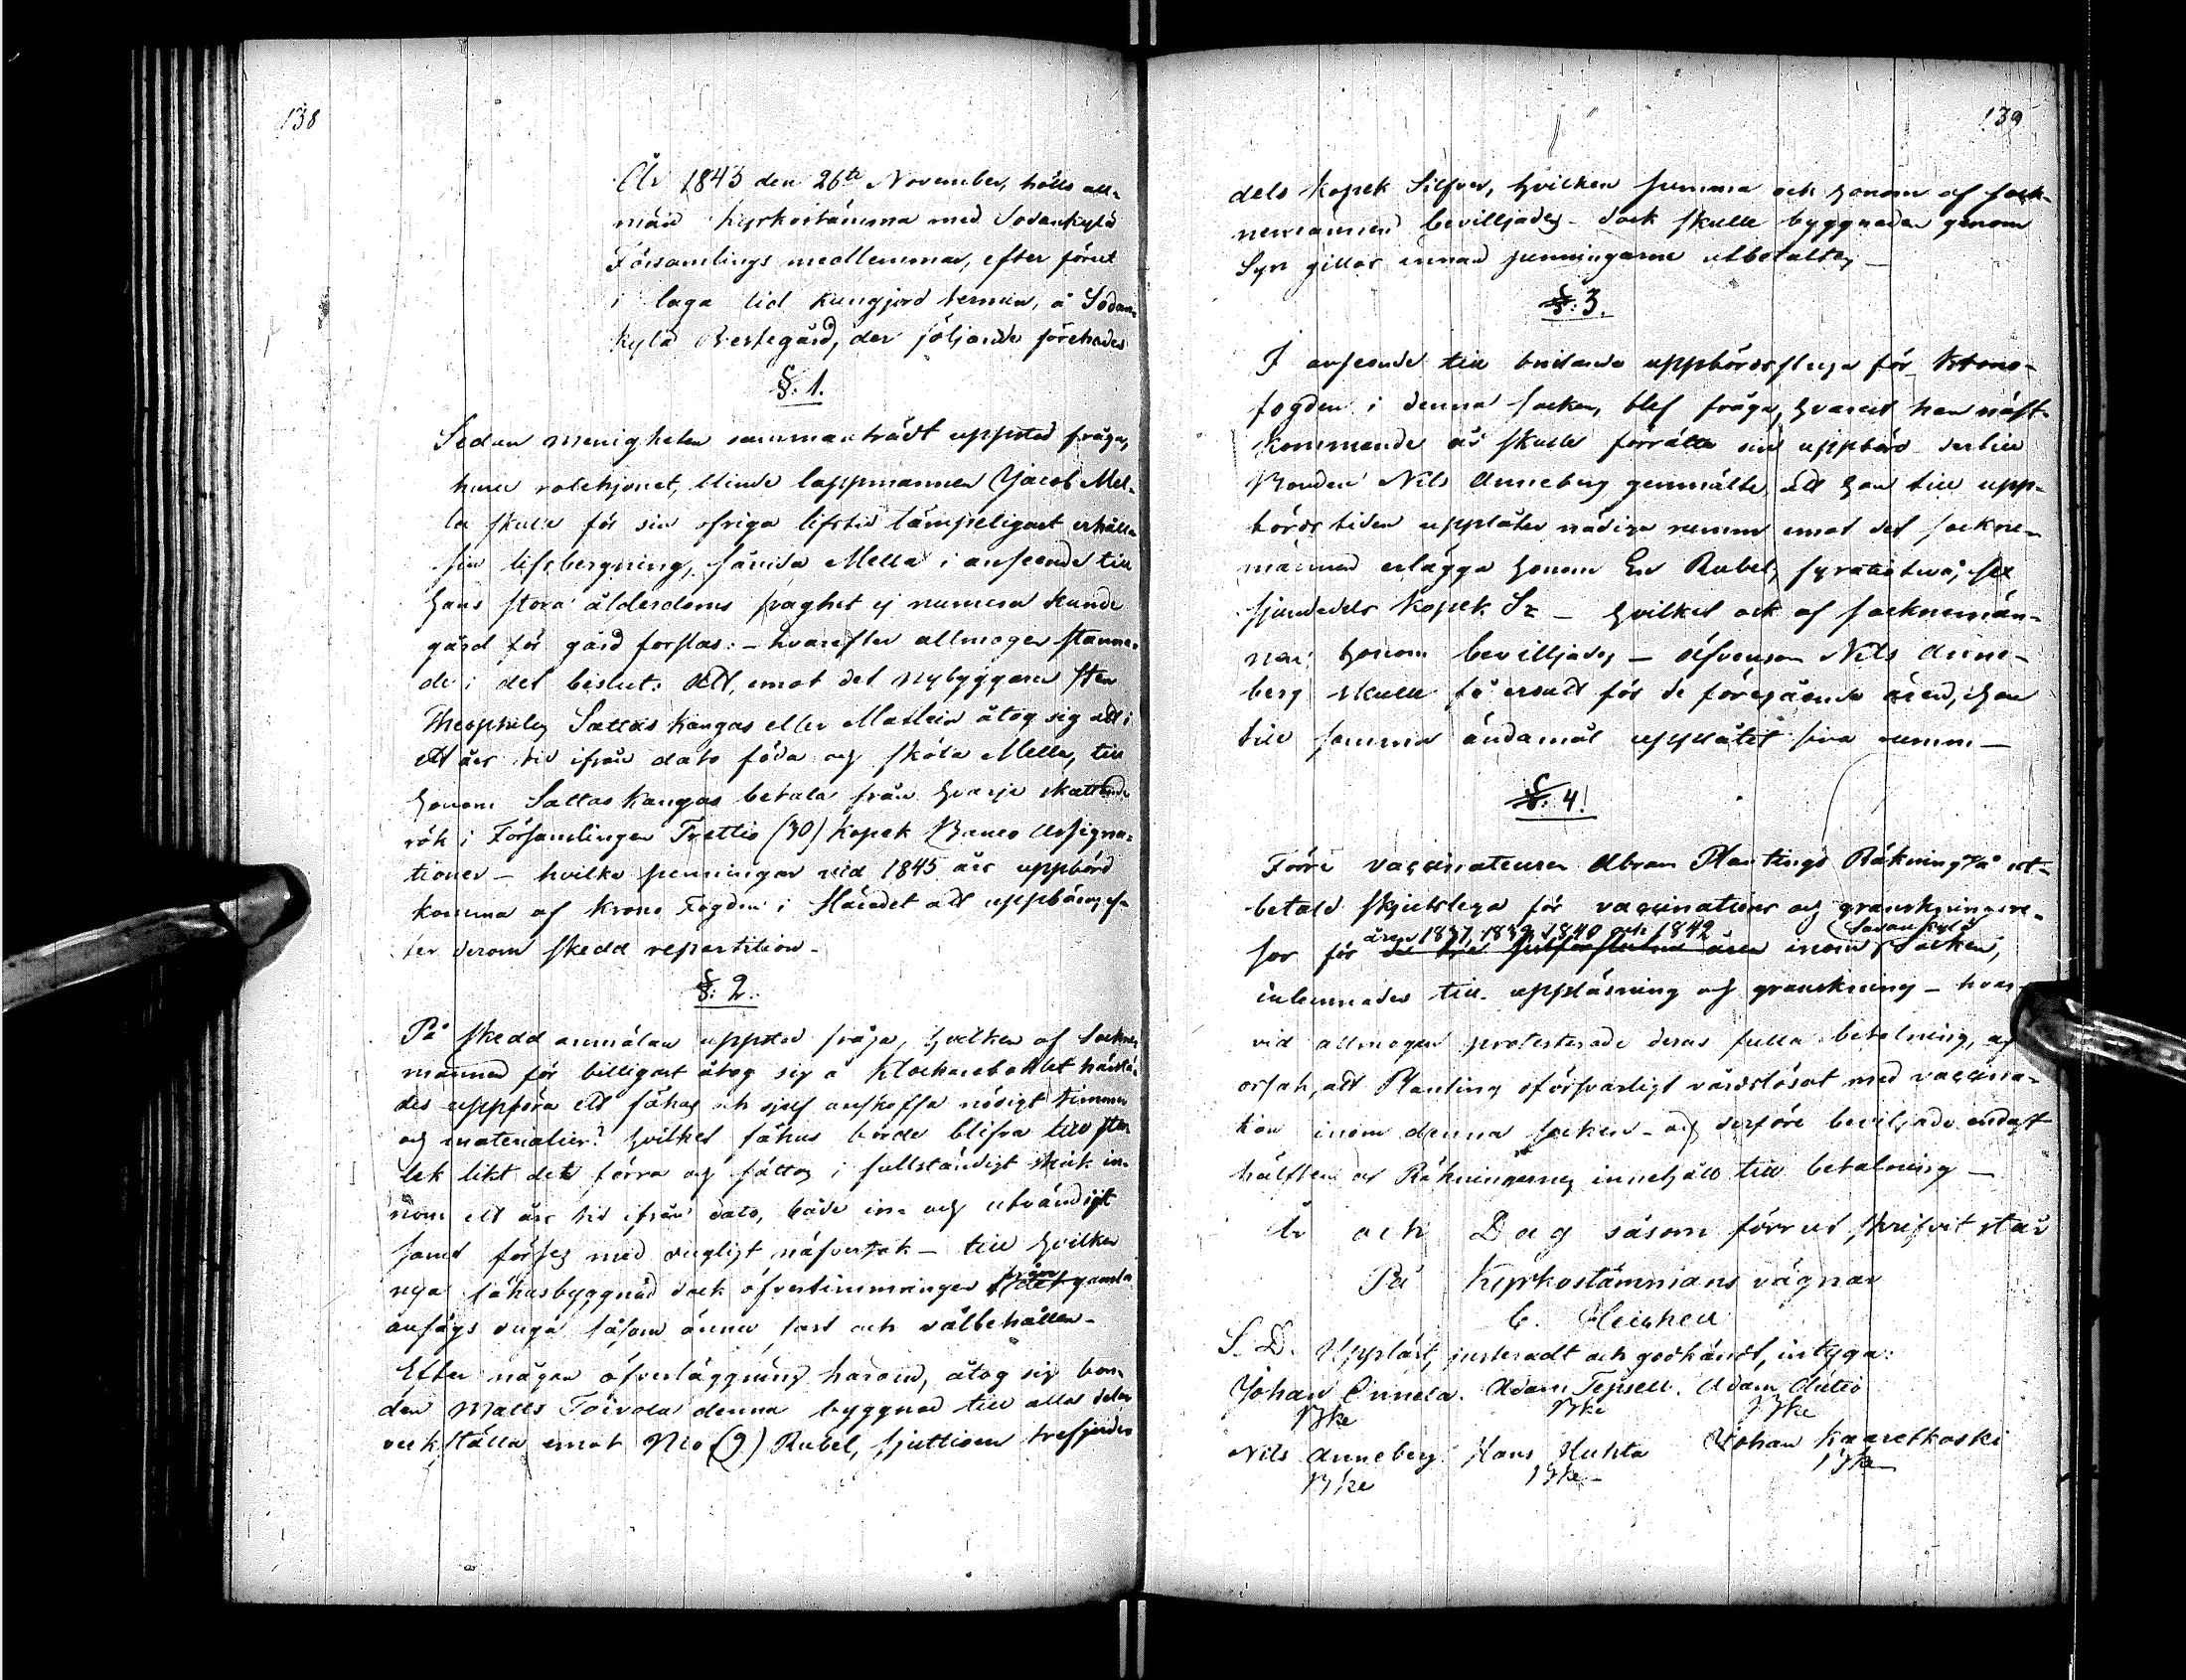 138
År 1843 den 26te November, hölls all-
män Kyrkostämma med Sodankylä
Församlings medlemmar, efter förut
i laga tid kungjord termin, å Sodan-
kylä Prestegård, der följande förehades
§: 1.
Sedan menigheten sammanträdt uppstod fråga,
huru rotehjonet, blinde lappmannen Jacob Mel-
la skulle för sin öfriga lifstid lämpeligast erhålla
sin lifsbergning, Mella i anseende till
hans stora ålderdoms svaghet ej numera kunde
gård för gård forslas: – hvarefter allmogen stanna-
de i det beslut: att, emot det nybyggaren Sten
Theophilus Sattaskangas eller Martein åtog sig att i
ett års tid ifrån dato föda och sköta Mella, till
honom Sattaskangas betala från hvarje skattande
rök i Församlingen Trettio (30) Kopek Banco Assigna-
tioner – hvilka penningar vid 1845 års uppbörd
komma af Krono Fogden i Häradet att uppbäras, ef-
ter derom skedd repartition –
§: 2.
På skedd anmälan uppstod fråga, hvilken af Sockne-
männen för billigast åtog sig å Klockarebohlet härstä-
des uppföra ett fähus och sjelf anskaffa nödigt timmer
och materialier? hvilket fähus borde blifva till stor-
lek likt det förra och sättas i fullständigt skick in-
nom ett års tid ifrån dato, både in- och utvändigt
samt förses med dugligt näfvertak – till hvilken
nya fähusbyggnad dock öfvertimmringen från det gamla
ansågs duga såsom ännu fast och välbehållen –
Efter någon öfverläggning härom, åtog sig bon-
den Matts Toivola denna byggnad till alla delar
verkställa emot Nio (9) Rubel, sjuttiosex trefjerde-
139
dels Kopek Silfver, hvilken summa ock honom af sock-
nemännen beviljades – dock skulle byggnaden genom
Syn gillas innan penningarne utbetaltes –
§: 3.
I anseende till uppbördsstuga för Krono-
fogden i denna socken, blef fråga, hvarest han näst-
kommande år skulle förrätta sin uppbörd
Bonden Nils Anneberg genmälte, att han till upp-
bördstiden upplåter nödiga rummen emot det sockne-
männen erlägga honom En Rubel, fyratiotvå, sex
sjundedels Kopek Sr – hvilket ock af socknemän-
nen honom beviljades – äfvensom Nils Anne-
berg skulle få ersatt för de föregående åren, han
till samma ändamål upplåtit sina rum –
§: 4.
Förre vaccinateuren Abram Plantings Räkning på ut-
betald skjutslega för vaccinations och granskningsre-
sor för åren 1837, 1839, 1840 och 1842 inom Sodankylä Socken,
inlemnades till uppläsning och granskning – hvar-
vid allmogen protesterade deras fulla betalning, af
orsak, att Planting oförsvarligt vårdslösat med vaccina-
tion inom denna socken – och derföre beviljade endast
hälften af Räkningarnes innehåll till betalning –
År och Dag såsom förrut skrifvit står
På Kyrkostämmans vägnar
C. Heickell
S. D. Uppläst, justeradt och godkändt, intyga:
Johan Onnela. Adam Tepsell. Adam Autio
Bke Bke Bke
Nils Anneberg Hans Huhta Johan Kaaretkoski
Bke Bke Bke